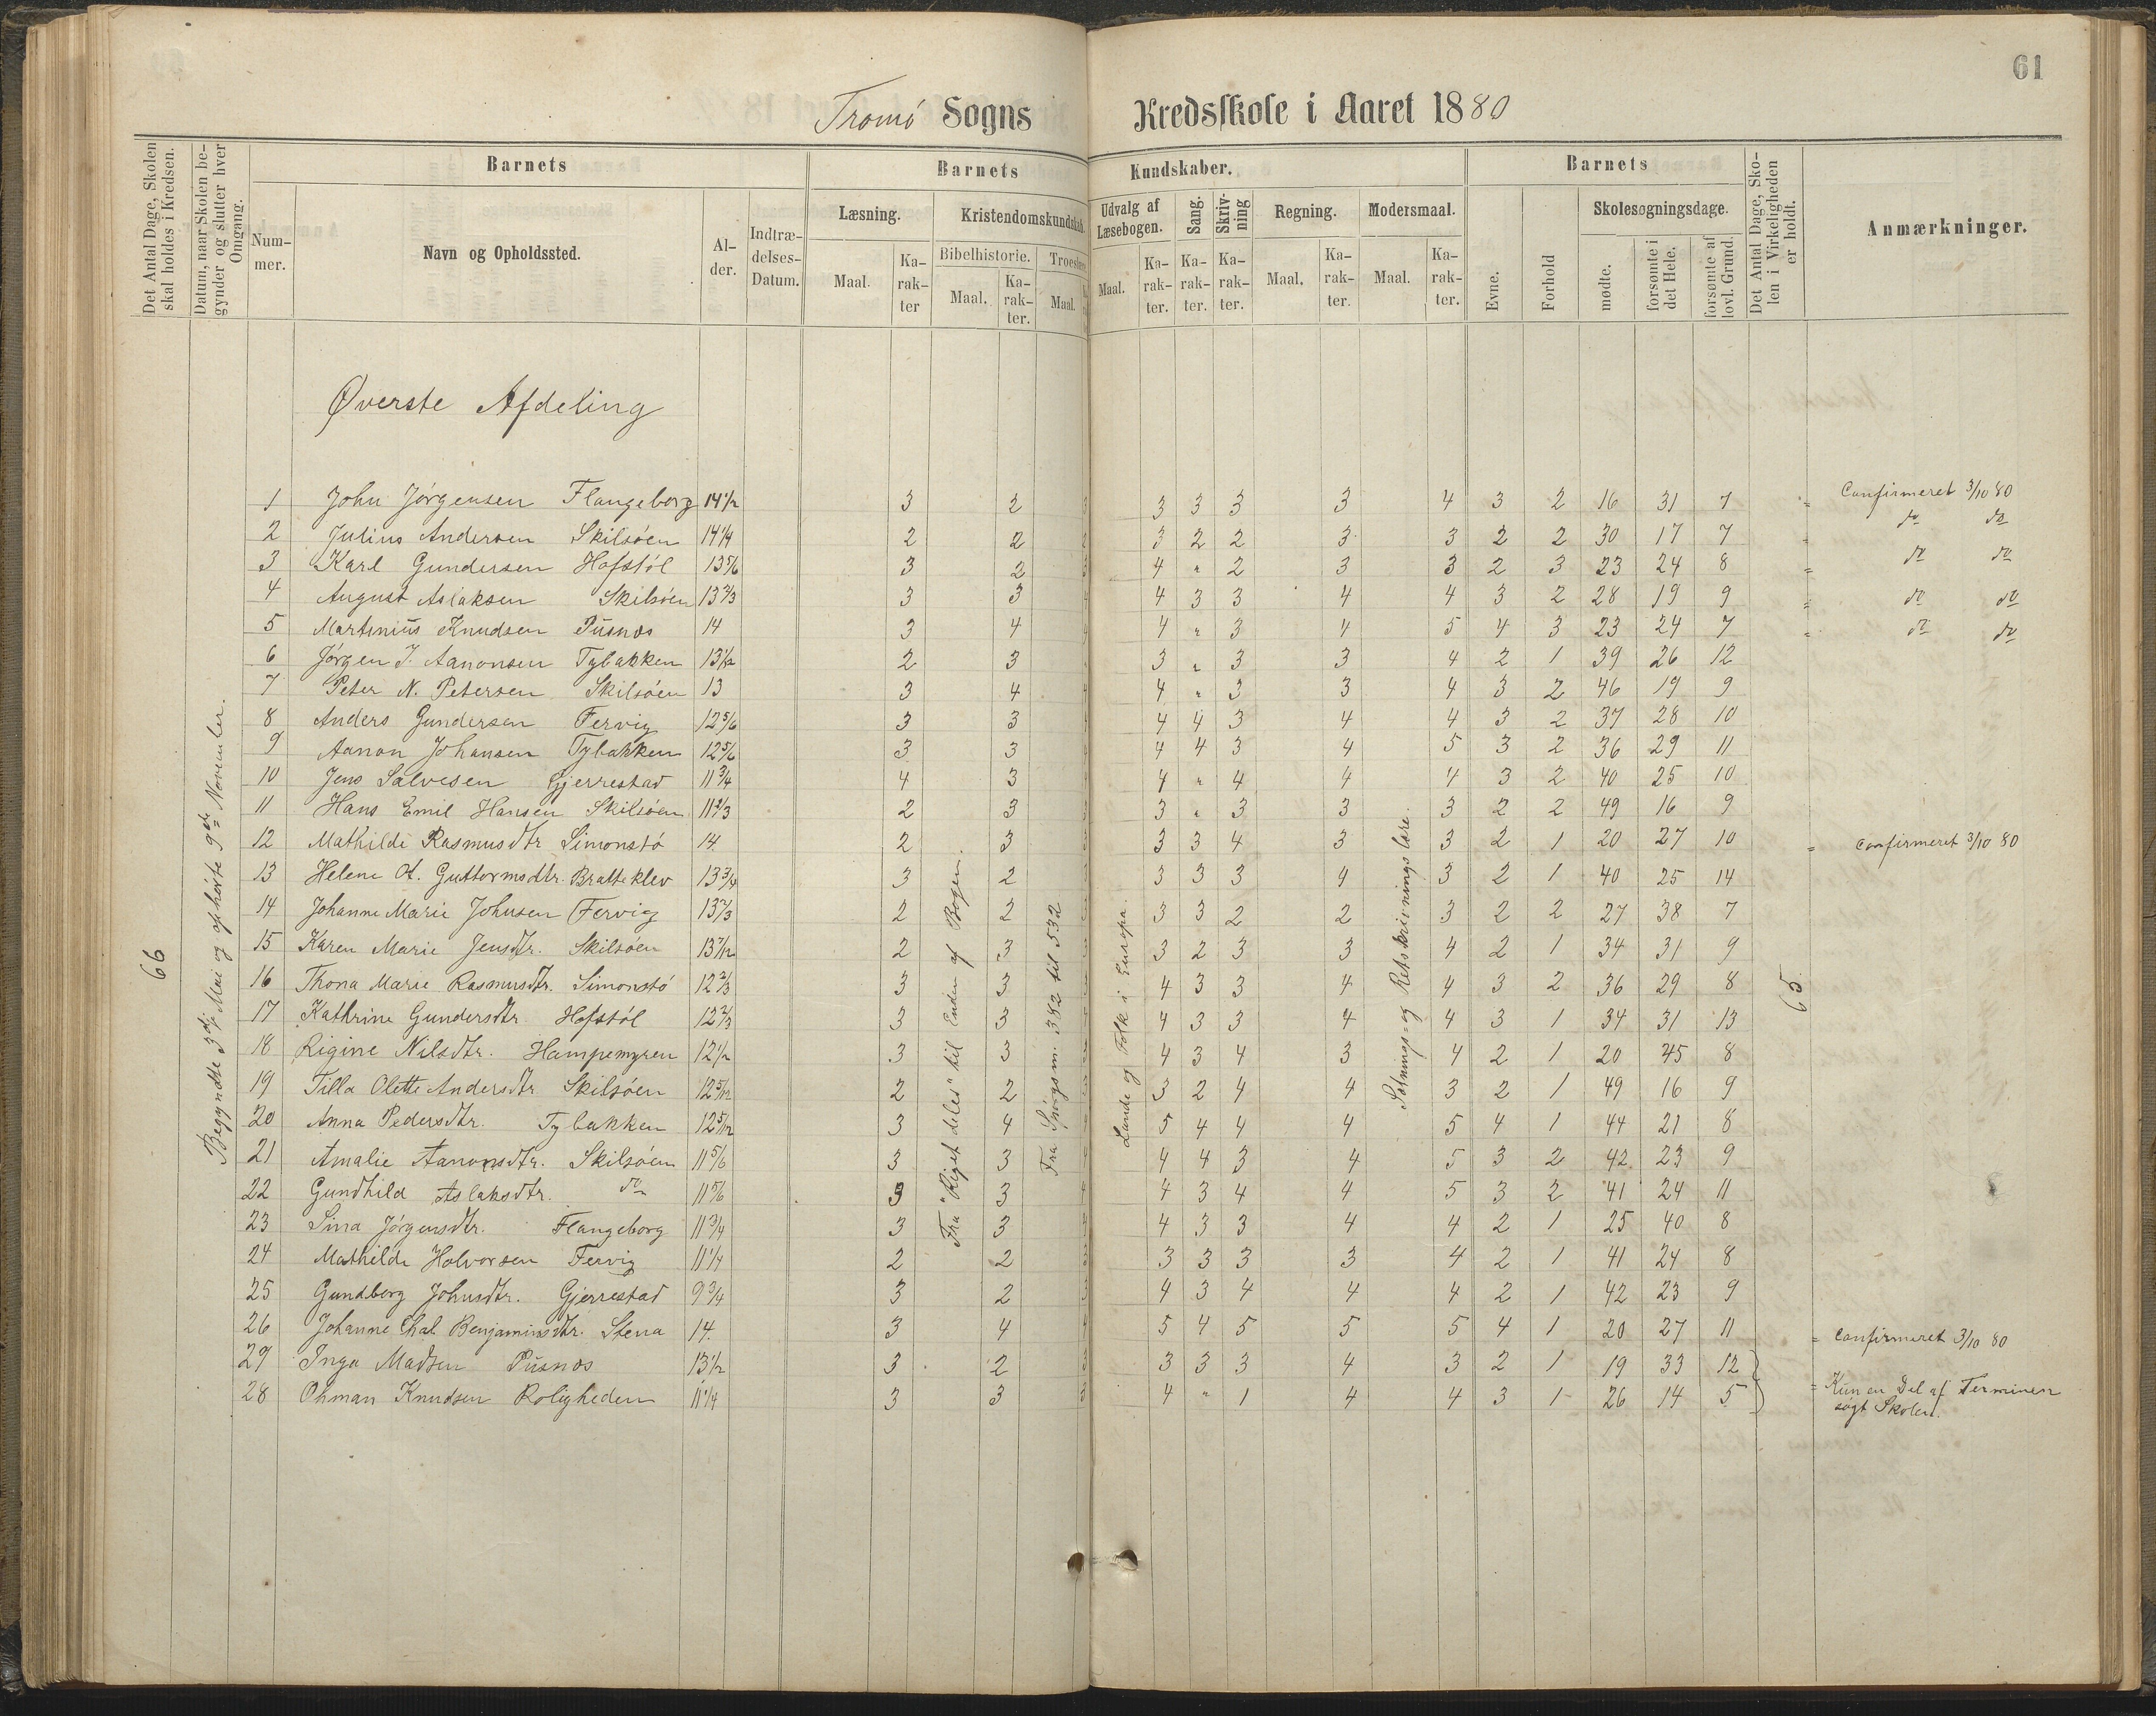 61
Tromö Sogns Kredsskole i Aaret 1880
Det Antal Dage, Skolen skal holdes i Kredsen.
Datum, naar Skolen begynder og slutter hver Omgang.
Barnets
Nummer.
Navn og Opholdssted.
Alder.
Indtrædelses-Datum.
Barnets Kundskaber.
Læsning.
Maal. Karakter
Kristendomskundskab.
Bibelhistorie.
Maal. Karakter.
Maal.
Udvalg af Læsebogen.
Maal. Karakter.
Sang. Karakter.
Skrivning Karakter.
Regning.
Maal. Karakter.
Modersmaal.
Maal. Karakter.
Barnets
Evne.
Forhold
Skolesøgningsdage.
mødte.
forsømte i det Hele.
forsømte af lovl. Grund.
Det Antal Dage, Skolen i Virkeligheden er holdt.
Anmærkninger.
Øverste Afdeling
66
Begyndte 3die Mai og ophörte 9de November.
Fra "Riget deles" til Enden af Bogen.
Fra Spörgsm. 382 til 532
Lande og Folk i Europa.
Sætnings= og Retskrivningslære.
65
1 John Jörgensen Flangeborg 14 1/2 3 2 3 3 3 3 3 4 3 2 16 31 7 = Confirmeret 3/10 80
2 Julius Andersen Skilsöen 14 1/4 2 2 2 3 2 2 3 3 2 2 30 17 7 = do do
3 Karl Gundersen Hofstöl 13 5/6 3 2 4 " 2 3 3 2 3 23 24 8 = do do
4 August Aslaksen Skilsöen 13 2/3 3 3 4 4 3 3 4 4 3 2 28 19 9 = do do
5 Martinius Knudsen Pusnes 14 3 4 4 4 " 3 4 5 4 3 23 24 7 = do do
6 Jörgen J. Aanonsen Tybakken 13 1/12 2 3 3 " 3 3 4 2 1 39 26 12
7 Peter N. Petersen Skilsöen 13 3 4 4 4 " 3 3 4 3 2 46 19 9
8 Anders Gundersen Fervig 12 5/6 3 3 4 4 3 4 4 3 2 37 28 10
9 Aanon Johansen Tybakken 12 5/6 3 3 4 4 3 4 5 3 2 36 29 11
10 Jens Salvesen Gjerrestad 11 3/4 4 3 4 " 4 4 4 3 2 40 25 10
11 Hans Emil Hansen Skilsöen 11 2/3 2 3 3 3 " 3 3 3 2 2 49 16 9
12 Mathilde Rasmusdtr Simonstö 14 2 3 3 3 4 3 3 2 1 20 27 10 = Confirmeret 3/10 80
13 Helene A. Guttormsdtr. Bratteklev 13 3/4 3 2 3 3 3 4 3 2 1 40 25 14
14 Johanne Marie Johnsen Fervig 13 2/3 2 2 3 3 2 2 3 2 2 27 38 7
15 Karen Marie Jensdtr. Skilsöen 13 7/12 2 3 3 2 3 3 4 2 1 34 31 9
16 Thona Marie Rasmusdtr. Simonstö 12 2/3 3 3 4 3 3 4 4 3 2 36 29 8
17 Kathrine Gundersdtr Hofstöl 12 2/3 3 3 4 3 3 4 4 3 1 34 31 13
18 Rigine Nilsdtr. Hampemyren 12 1/2 3 3 4 3 4 3 4 2 1 20 45 8
19 Tilla Olette Andersdtr Skilsöen 12 5/12 2 2 3 3 2 4 4 3 2 1 49 16 9
20 Anna Pedersdtr. Tybakken 12 5/12 3 4 5 4 4 4 5 4 1 44 21 8
21 Amalie Aanonsdtr. Skilsöen 11 5/6 3 3 4 4 3 4 5 3 2 42 23 9
22 Gundhild Aslaksdtr. do 11 5/6 3 3 4 4 3 4 4 5 3 2 41 24 11
23 Sina Jörgensdtr. Flangeborg 11 3/4 3 3 4 4 3 3 4 4 2 1 25 40 8
24 Mathilde Halvorsen Fervig 11 1/4 2 2 3 3 3 3 3 4 2 1 41 24 8
25 Gundborg Johnsdtr. Gjerrestad 9 3/4 3 2 3 4 3 4 4 4 2 1 42 23 9
26 Johanne Chal. Benjaminsdtr. Stena 14. 3 4 5 4 5 5 5 4 1 20 27 11 = Confirmeret 3/10 80
27 Inga Madsen Pusnes 13 1/2 3 2 3 3 3 3 4 3 2 1 19 33 12
28 Ohman Knudsen Roligheden 11 1/4 3 3 3 4 " 1 4 4 3 1 26 14 5 = Kun en Del af Terminen
søgt Skolen.